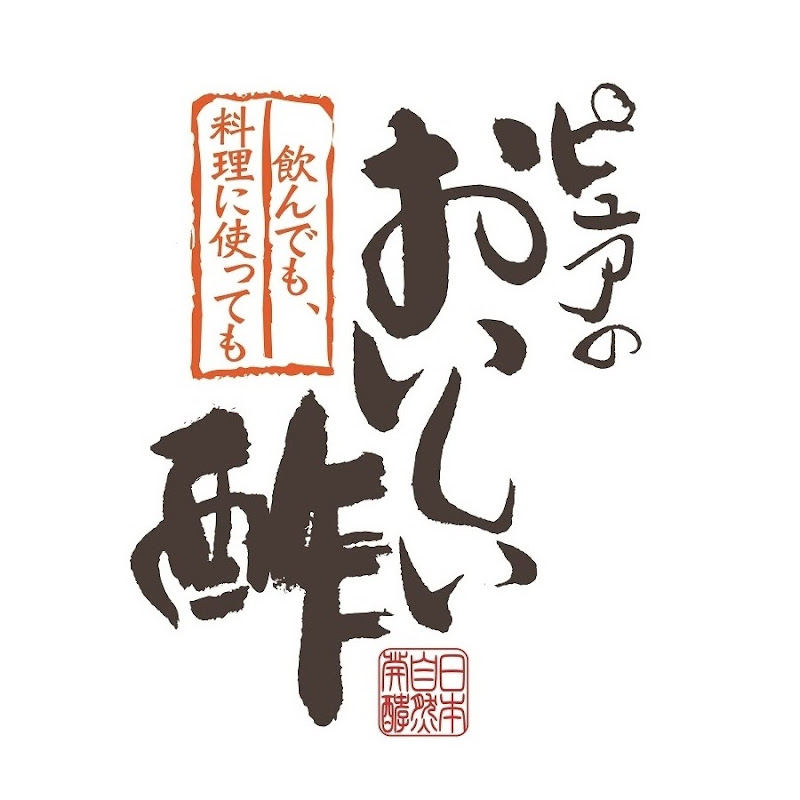 ピュアの
おいしい
酢
飲んでも、
料理に使っても
日本
自然
発酵